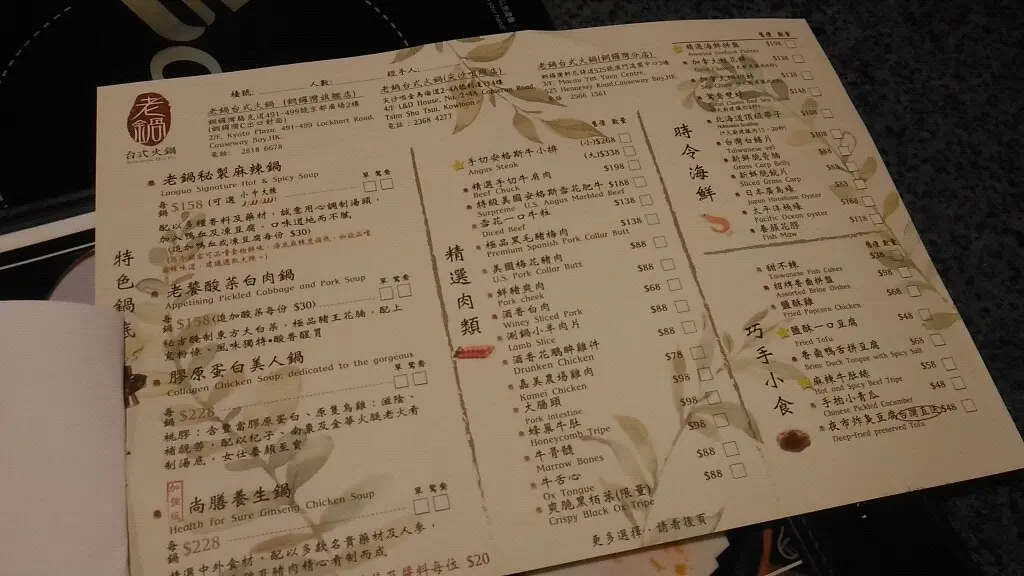 檯號:
人數:
經手人:
老鍋
台式火鍋
老鍋台式火鍋 (銅鑼灣旗艦店)
銅鑼灣駱克道491-499號京都廣場2樓
(銅鑼灣C出口對面)
2/F, Kyoto Plaza, 491-499 Lockhart Road,
Causeway Bay,HK
電話: 2818 6678
老鍋台式火鍋(尖沙咀旗艦店)
4/F L&D House,
Tsim Sho Tsui, Kowloon
電話: 2368 4277
老鍋台式火鍋(銅鑼灣分店)
Macau Yat Yuen Centre,
525 Hennessy Road,Causeway Bay,HK
2566 1561
特色鍋底
老鍋秘製麻辣鍋
Laoguo Signature Hot & Spicy Soup
單 鴛鴦
每鍋 $158 (可選 小中大辣
配以多種香料及藥材，誠意用心調制湯頭，
加入鴨血及凍豆腐，口味道地而不膩
(追加鴨血或凍豆腐每份 $30)
老饕酸菜白肉鍋
Appetising Pickled Cabbage and Pork Soup
單 鴛鴦
每鍋 $158 (追加酸菜每份 $30)
秘方醃制東方大白菜，極品豬五花腩，配上
寬粉條、風味獨特•酸香醒胃
膠原蛋白美人鍋
Collagen Chicken Soup: dedicated to the gorgeous
單 鴛鴦
每鍋 $228
桃膠；含豐富膠原蛋白、原隻烏雞；滋陰、
補競勞；配以杞子、南棗及金華火腿老火看
制湯底，女仕養顏至賓
尚膳養生鍋
Health for Sure Ginseng Chicken Soup
單 鴛鴦
每鍋 $228
精選中外食材，配以多款名貴藥材及人參，
醬料每位 $20
精選肉類
售價 數量
手切安格斯牛小排 (小)$268
Angus Steak (大)$338
精選手切牛肩肉 $198
Beef Chuck
特級美國安格斯雪花肥牛 $188
Surpreme U.S. Angus Marbled Beef
雪花一口牛粒 $138
Diced Beef
極品黑毛豬梅肉 $138
Premium Spanish Pork Collar Butt
美國梅花豬肉 $88
U.S. Pork Collar Butt
鮮豬爽肉 $88
Pork cheek
酒香白肉 $68
Winey Sliced Pork
涮鍋小羊肉片 $88
Lamb Slice
酒香花鵰醉雞件 $88
Drunken Chicken
嘉美農場雞肉 $78
Kamei Chicken
大腸頭 $98
Pork Intestine
蜂巢牛肚 $98
Honeycomb Tripe
牛骨髓 $98
Marrow Bones
牛舌心 $88
Ox Tongue
爽脆黑栢葉(限量) $88
Crispy Black Ox Tripe
更多選擇，請看後頁
時令海鮮
售價 數量
精選海鮮拼盤 $198
Assorted Seafood Platter
$138
$138
$148
北海道頂級帶子
Hokkaido Scallop
台灣白鱔片
Taiwanese eel
新鮮鯇魚腩
Grass Carp Belly
新鮮鯇魚片
Sliced Grass Carp
日本廣島蠔
Japan Hiroshima Oyster
太平洋桶蠔 $168
Pacific Ocean oyster
養顏花膠 $118
Fish Maw
巧手小食
售價 數量
甜不辣 $38
Taiwanese Fish Cakes
招牌香滷拼盤 $98
Assorted Brine Dishes
鹽酥雞 $68
Fried Popcorn Chicken
鹽酥一口豆腐 $48
Fried Tofu
香滷鴨舌拼豆腐 $68
Brine Duck Tongue with Spicy Salt
麻辣牛肚絲 $58
Hot and Spicy Beef Tripe
手拍小青瓜 $48
Chinese Pickled Cucumber
夜市炸臭豆腐(台灣直送) $48
Deep-fried preserved Tofu